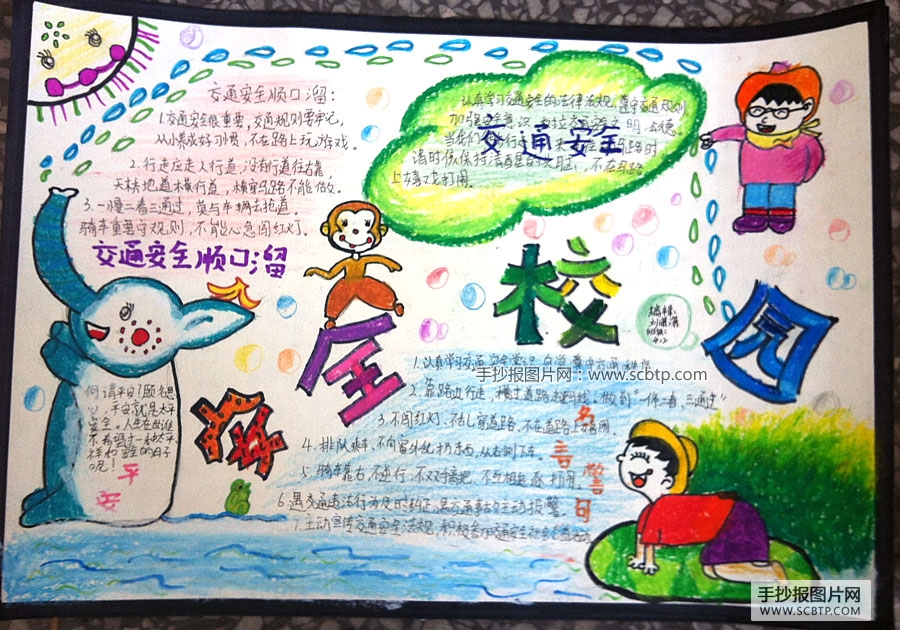 交通安全顺口溜:
1.交通安全很重要,交通规则要牢记,
从小养成好习惯,不在路上玩游戏。
2.行走应走人行道,没有行道往右靠,
天桥地道横行道,横穿马路不能做。
3.一慢二看三通过,莫与车辆去抢道。
骑车更要守规则,不能心急闯红灯。
交通安全顺口溜
认真学习交通安全的法律法规,遵守交通规则
加强安全意识,树立交通文明公德。
交通安全
当我们
诸时保持清醒的头脑,不在马路
上嬉戏打闹。
安全校园
何谓平安?顾名思
义,平安就是太平
安全。人生在世谁
不希望过一种太平
祥和安全的日子
呢!
平安
1.认真学习交通安全常识,自觉遵守交通秩序
手抄报图片网:www.scbtp.com
2.靠路边行走,横过道路走斑马线,做到“一停二看三通过”
3.不闯红灯、不乱穿道路、不在道路上嬉闹。
4.排队乘车、不向窗外乱扔东西,从右侧下车。
5.骑车靠右,不逆行,不双手撒把,不互相追逐打闹。
6.遇交通违法行为及时纠正,遇交通事故主动报警。
7.主动宣传交通安全法规,积极参加交通安全社会实践活动
名言警句
手抄报图片网
WWW.SCBTP.COM